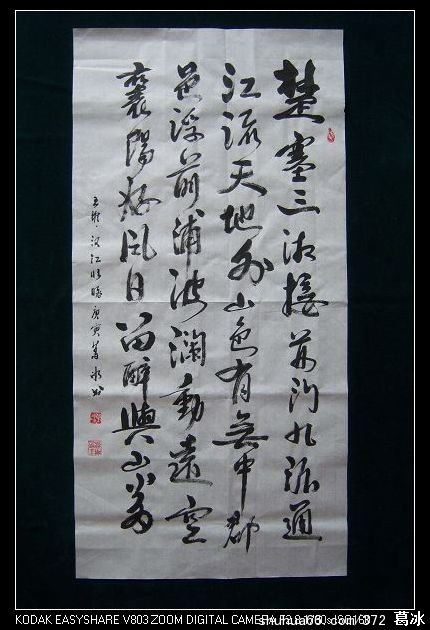 楚塞三湘接荆门九派通
江流天地外山色有無中郡
邑浮前浦波瀾動遠空
襄陽好風日留醉與山翁
王維·汉江临眺庚寅葛冰书
KODAK EASYSHARE V803 ZOOM DIGITAL CAMERA
372 葛冰